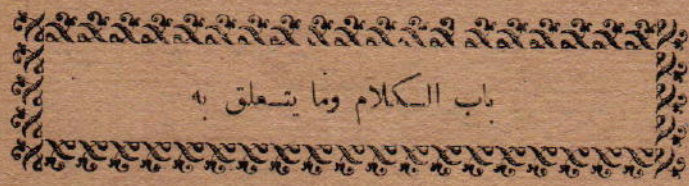 باب الكلام وما يتعلق به